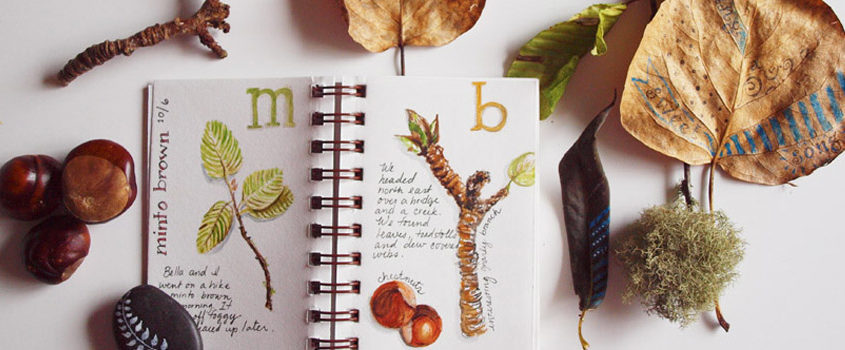 minto brown 10/6
m
Bella and I
went on a hike
minto brown
morning. It
off foggy
up later.
b
We
headed
north east
over a bridge
and a creek.
We found
leaves, toadstools
and dew covered
webs.
interesting gnarly branch
chestnuts